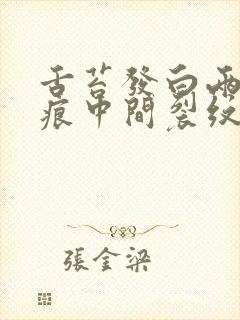 舌苔發白兩
痕中間裂紋
張金梁